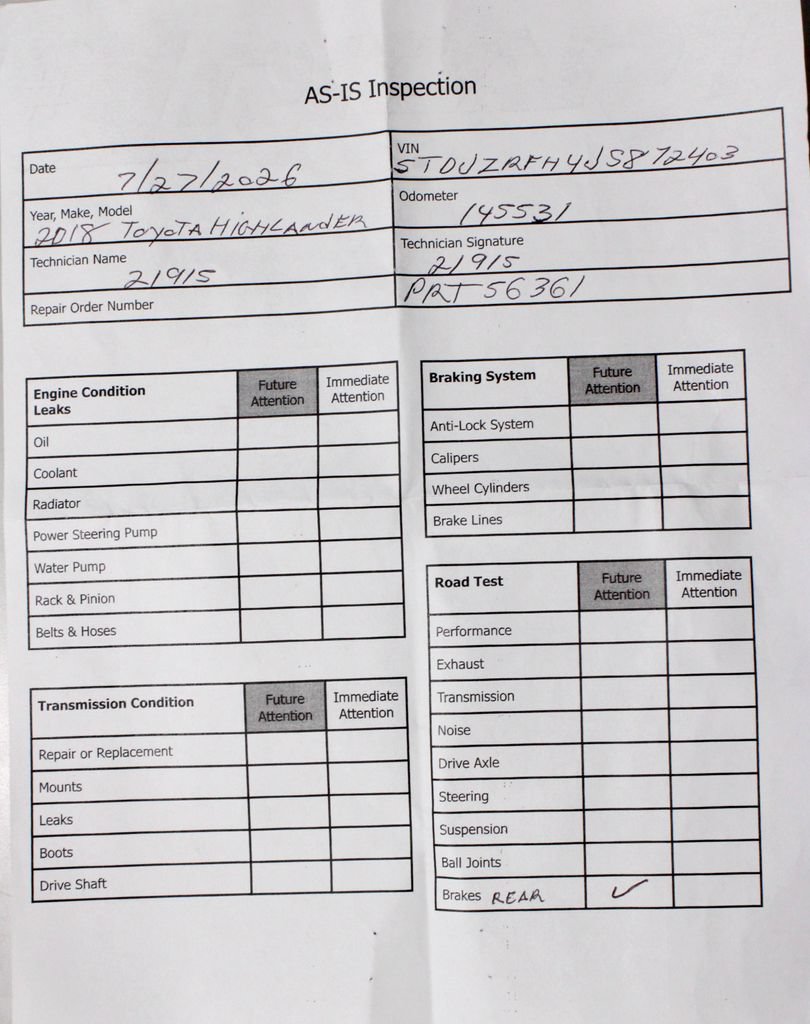 AS-IS Inspection
Date 7/27/2026
VIN 5TDJZRFH4JS872403
Year, Make, Model 2018 TOYOTA HIGHLANDER
Odometer 145531
Technician Name 21915
Technician Signature 21915
Repair Order Number
PRT 56361
Engine Condition Leaks Future Attention Immediate Attention
Oil
Coolant
Radiator
Power Steering Pump
Water Pump
Rack & Pinion
Belts & Hoses
Transmission Condition Future Attention Immediate Attention
Repair or Replacement
Mounts
Leaks
Boots
Drive Shaft
Braking System Future Attention Immediate Attention
Anti-Lock System
Calipers
Wheel Cylinders
Brake Lines
Road Test Future Attention Immediate Attention
Performance
Exhaust
Transmission
Noise
Drive Axle
Steering
Suspension
Ball Joints
Brakes REAR ✓